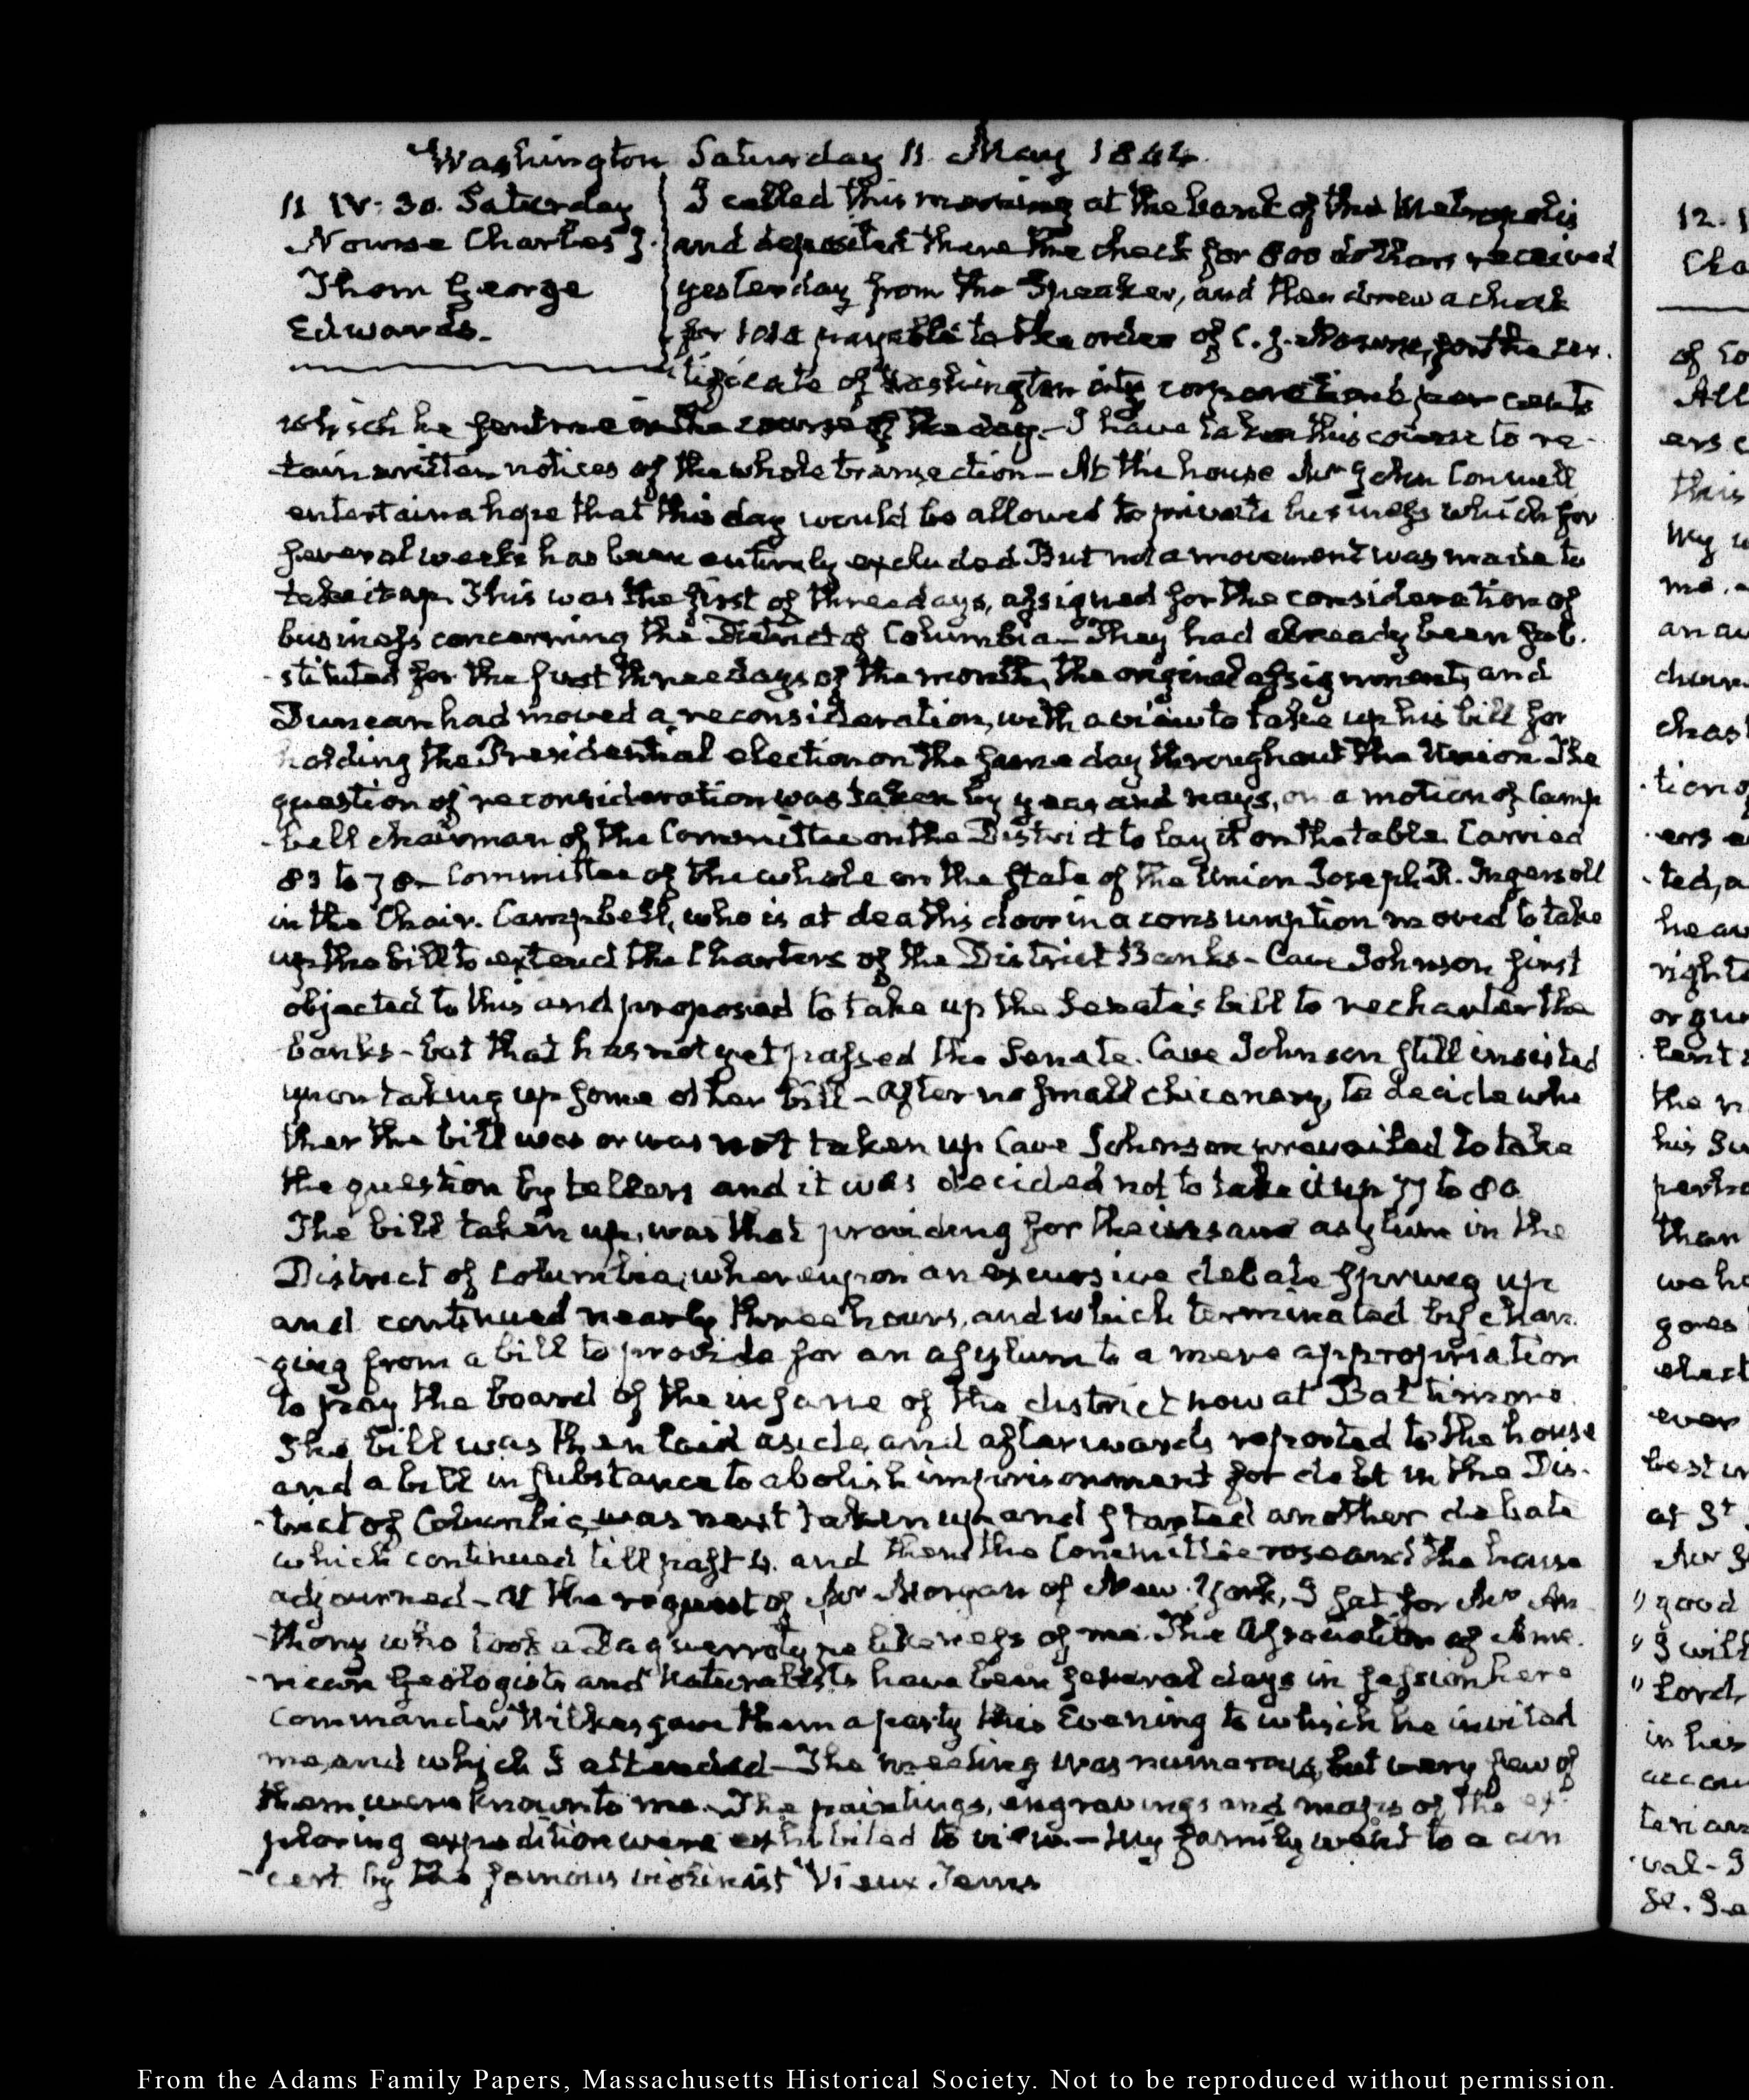 Washington Saturday 11. May 1844.
11 IV: 30. Saturday
Nourse Charles J.
Thom George
Edwards.
I called this morning at the bank of the Metropolis
and deposited there the check for 800 dollars received
yesterday from the Speaker, and then drew a check
for payable to the order of C. J. Nourse, for the cer-
tificate of Washington city corporation per cents
which he sent me in the course of the day. I have taken this course to re-
tain written notices of the whole transaction — At the house Mr John Conwell
entertain a hope that this day would be allowed to private business which for
several weeks has been entirely excluded But not a movement was made to
take it up. This was the first of three days, assigned for the consideration of
business concerning the District of Columbia — They had already been sub-
stituted for the first three days of the month, the original assignment, and
Duncan had moved a reconsideration, with a view to take up his bill for
holding the Presidential election on the same day throughout the Union. The
question of reconsideration was taken by yeas and nays, on a motion of Camp
bell chairman of the Committee on the District to lay it on the table. Carried
83 to 78 — Committee of the whole on the State of the Union Joseph R. Ingersoll
in the Chair. Campbell, who is at death's door in a consumption moved to take
up the bill to extend the Charters of the District Banks — Cave Johnson first
objected to this and proposed to take up the Senate's bill to recharter the
banks — but that has not yet passed the Senate. Cave Johnson still insisted
upon taking up some other bill — After no small chicanery, to decide whe
ther the bill was or was not taken up Cave Johnson prevailed to take
the question by tellers and it was decided not to take it up 77 to 80
The bill taken up, was that providing for the insane asylum in the
District of Columbia, whereupon an excursive debate sprung up
and continued nearly three hours, and which terminated by chan-
ging from a bill to provide for an asylum to a mere appropriation
to pay the board of the insane of the district now at Baltimore.
The bill was then laid aside, and afterwards reported to the house
and a bill in substance to abolish imprisonment for debt in the Dis-
trict of Columbia, was next taken up and started another debate
which continued till past 4. and then the Committee rose and the house
adjourned — At the request of Mr Morgan of New-York, I sat for Mr An
thony who took a Daguerrotype likeness of me. The Association of Ame-
rican Geologists and Naturalists have been several days in session here
Commander Wilkes gave them a party this Evening to which he invited
me, and which I attended — The meeting was numerous, but very few of
them were known to me. The paintings, engravings and maps of the ex-
ploring expedition were exhibited to view — My family went to a con
cert by the famous violinist Vieux Tems
12.
Cha
of Co
All
ers c
this
my
me.
an au
chas
tion of
ted, a
he
right
or
lent
the
his
than
we
goes
elect
ever
best
at
"good
"I will
"Lord,
in his
accou
val - 
From the Adams Family Papers, Massachusetts Historical Society. Not to be reproduced without permission.